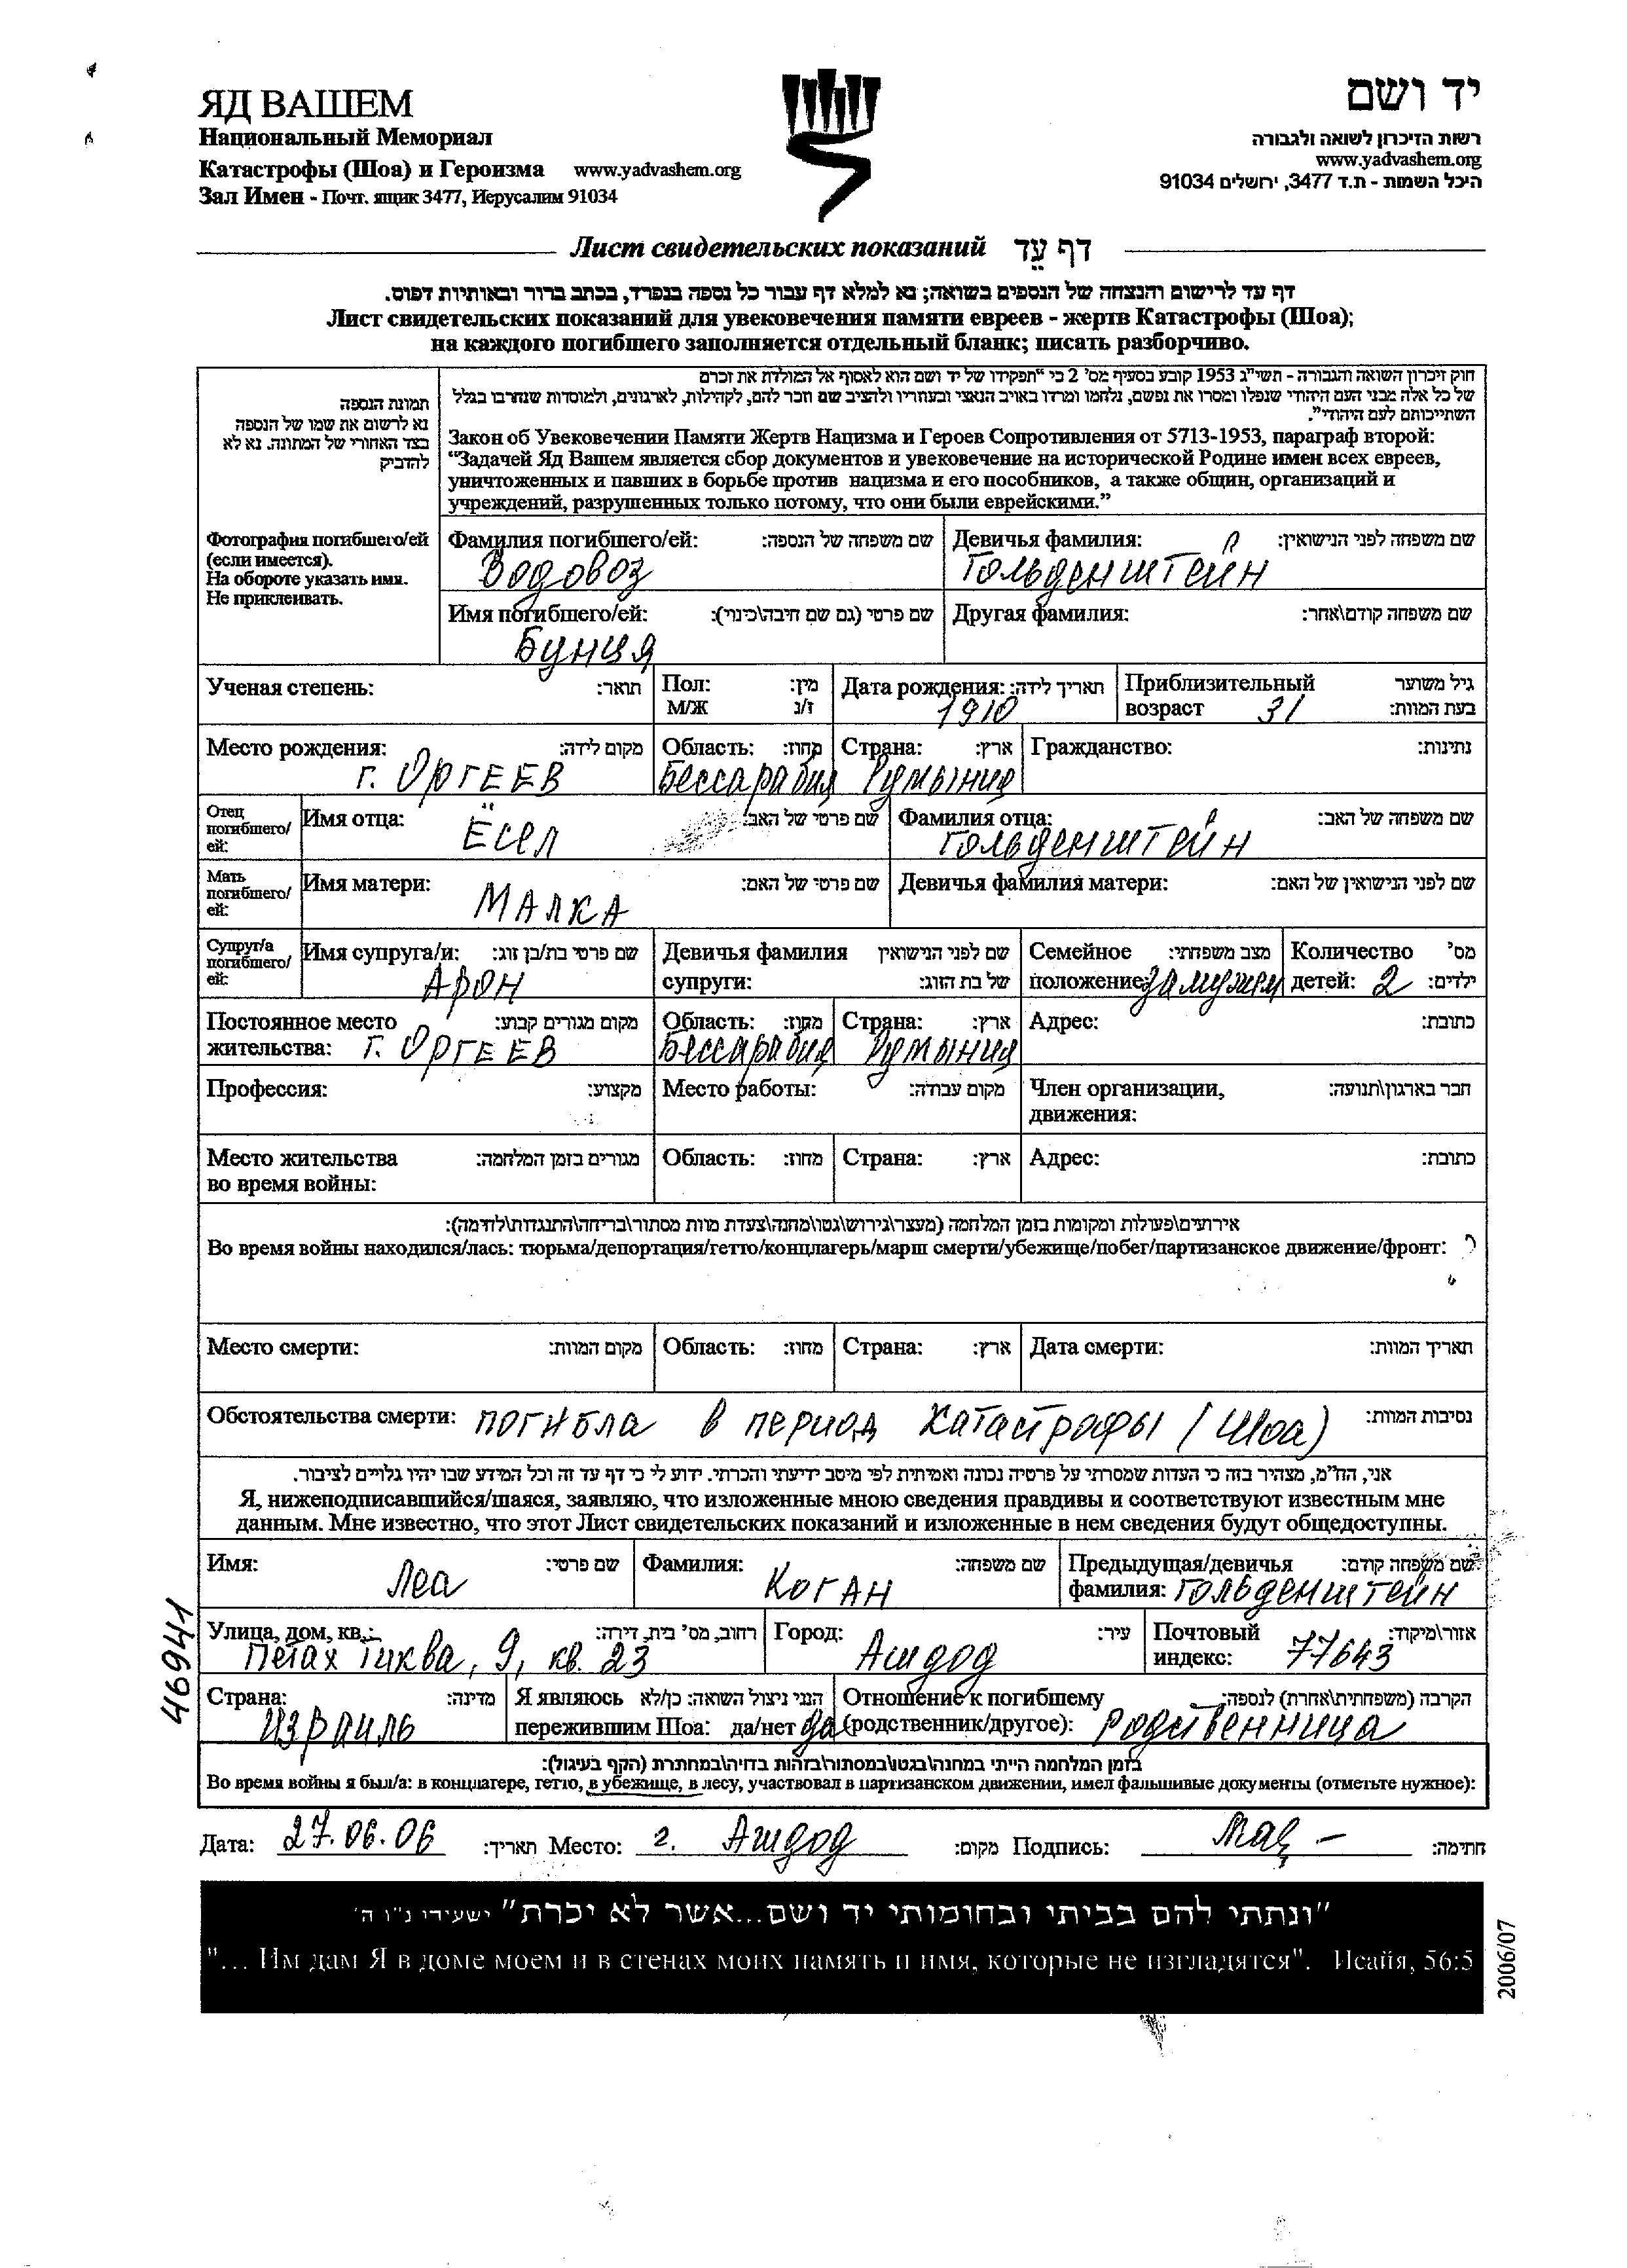 ЯД ВАШЕМ
Национальный Мемориал
Катастрофы (Шоа) и Героизма www.yadvashem.org
Зал Имен - Почт. ящик 3477, Иерусалим 91034
יד ושם
רשות הזיכרון לשואה ולגבורה
www.yadvashem.org
היכל השמות - ת.ד 3477, ירושלים 91034
Лист свидетельских показаний דף עֵד
דף עד לרישום והנצחה של הנספים בשואה; נא למלא דף עבור כל נספה בנפרד, בכתב ברור ובאותיות דפוס.
Лист свидетельских показаний для увековечения памяти евреев - жертв Катастрофы (Шоа);
на каждого погибшего заполняется отдельный бланк; писать разборчиво.
תמונת הנספה
נא לרשום את שמו של הנספה
בצד האחורי של התמונה. נא לא
להדביק
Фотография погибшего/ей
(если имеется).
На обороте указать имя.
Не приклеивать.
חוק זיכרון השואה והגבורה - תשי"ג 1953 קובע בסעיף מס' 2 כי "תפקידו של יד ושם הוא לאסוף אל המולדת את זכרם
של כל אלה מבני העם היהודי שנפלו ומסרו את נפשם, נלחמו ומרדו באויב הנאצי ובעוזריו ולהציב שם וזכר להם, לקהילות, לארגונים, ולמוסדות שנחרבו בגלל
השתייכותם לעם היהודי".
Закон об Увековечении Памяти Жертв Нацизма и Героев Сопротивления от 5713-1953, параграф второй:
"Задачей Яд Вашем является сбор документов и увековечение на исторической Родине имен всех евреев,
уничтоженных и павших в борьбе против нацизма и его пособников, а также общин, организаций и
учреждений, разрушенных только потому, что они были еврейскими."
Фамилия погибшего/ей: שם משפחה של הנספה: Девичья фамилия: שם משפחה לפני הנישואין:
Водовоз Гольденштейн
Имя погибшего/ей: שם פרטי (גם שם חיבה\כינוי): Другая фамилия: שם משפחה קודם\אחר:
Бунця
Ученая степень: תואר: Пол: מין: Дата рождения: תאריך לידה: Приблизительный גיל משוער
М/Ж ז/נ 1910 возраст 31 בעת המוות:
Место рождения: מקום לידה: Область: מחוז: Страна: ארץ: Гражданство: נתינות:
г. Оргеев Бессарабия Румыния
Отец погибшего/ей: Имя отца: שם פרטי של האב: Фамилия отца: שם משפחה של האב:
Ёсел Гольденштейн
Мать погибшего/ей: Имя матери: שם פרטי של האם: Девичья фамилия матери: שם לפני הנישואין של האם:
МАЛКА
Супруг/а погибшего/ей: Имя супруга/и: שם פרטי בת/בן זוג: Девичья фамилия שם לפני הנישואין Семейное מצב משפחתי: Количество מס'
АРОН супруги: של בת הזוג: положение: замужем детей: 2 ילדים:
Постоянное место מקום מגורים קבוע: Область: מחוז: Страна: ארץ: Адрес: כתובת:
жительства: г. Оргеев Бессарабия Румыния
Профессия: מקצוע: Место работы: מקום עבודה: Член организации, חבר בארגון\תנועה:
движения:
Место жительства מגורים בזמן המלחמה: Область: מחוז: Страна: ארץ: Адрес: כתובת:
во время войны:
אירועים\פעולות ומקומות בזמן המלחמה (מעצר\גירוש\גטו\מחנה\צעדת מוות מסתור\בריחה\התנגדות\לחימה):
Во время войны находился/лась: тюрьма/депортация/гетто/концлагерь/марш смерти/убежище/побег/партизанское движение/фронт:
Место смерти: מקום המוות: Область: מחוז: Страна: ארץ: Дата смерти: תאריך המוות:
Обстоятельства смерти: погибла в период Катастрофы (Шоа) נסיבות המוות:
אני, הח"מ, מצהיר בזה כי העדות שמסרתי על פרטיה נכונה ואמיתית לפי מיטב ידיעתי והכרתי. ידוע לי כי דף עד זה וכל המידע שבו יהיו גלויים לציבור.
Я, нижеподписавшийся/шаяся, заявляю, что изложенные мною сведения правдивы и соответствуют известным мне
данным. Мне известно, что этот Лист свидетельских показаний и изложенные в нем сведения будут общедоступны.
Имя: שם פרטי: Фамилия: שם משפחה: Предыдущая/девичья שם משפחה קודם:
Леа Коган фамилия: Гольденштейн
Улица, дом, кв.: רחוב, מס' בית, דירה: Город: עיר: Почтовый אזור\מיקוד:
Петах Тиква, 9, кв. 23 Ашдод индекс: 77643
Страна: מדינה: Я являюсь הנני ניצול השואה: כן/לא Отношение к погибшему הקרבה (משפחתית\אחרת) לנספה:
Израиль пережившим Шоа: да/нет да (родственник/другое): родственница
בזמן המלחמה הייתי במחנה\בגטו\במסתור\בזהות בדויה\במחתרת (הקף בעיגול):
Во время войны я был/а: в концлагере, гетто, в убежище, в лесу, участвовал в партизанском движении, имел фальшивые документы (отметьте нужное):
Дата: 27.06.06 תאריך: Место: г. Ашдод מקום: Подпись: חתימה:
"ונתתי להם בביתי ובחומותי יד ושם...אשר לא יכרת" ישעיהו נ"ו ה'
"... Им дам Я в доме моем и в стенах моих память и имя, которые не изгладятся". Исайя, 56:5
46941
2006/07